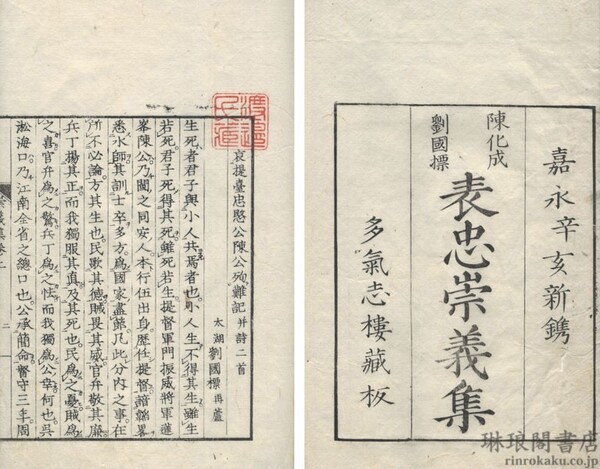 嘉永辛亥新鐫
陳化成
劉國標
表忠崇義集
多氣志樓藏板
哀提臺忠愍公陳公殉難記 并詩二首
太湖劉國標冉廬
生死者君子與小人共焉者也小人生不得其生雖生
若死君子死得其死雖死若生提督軍門振威將軍蓮
峯陳公乃閩之同安人本行伍出身歷任提督諳韜畧
悉水師其訓士卒多方為國家盡節凡此分內之事在
所不必論方其生也民歌其德賊畏其威官弁敬其廉
兵丁揚其正而我獨服其真及其死也民為之憂賊為
之喜官弁為之驚兵丁為之怯而我獨為公幸何也吳
淞海口乃江南全省之總口也公承簡命督守三年周
琳琅閣書店
rinrokaku.co.jp